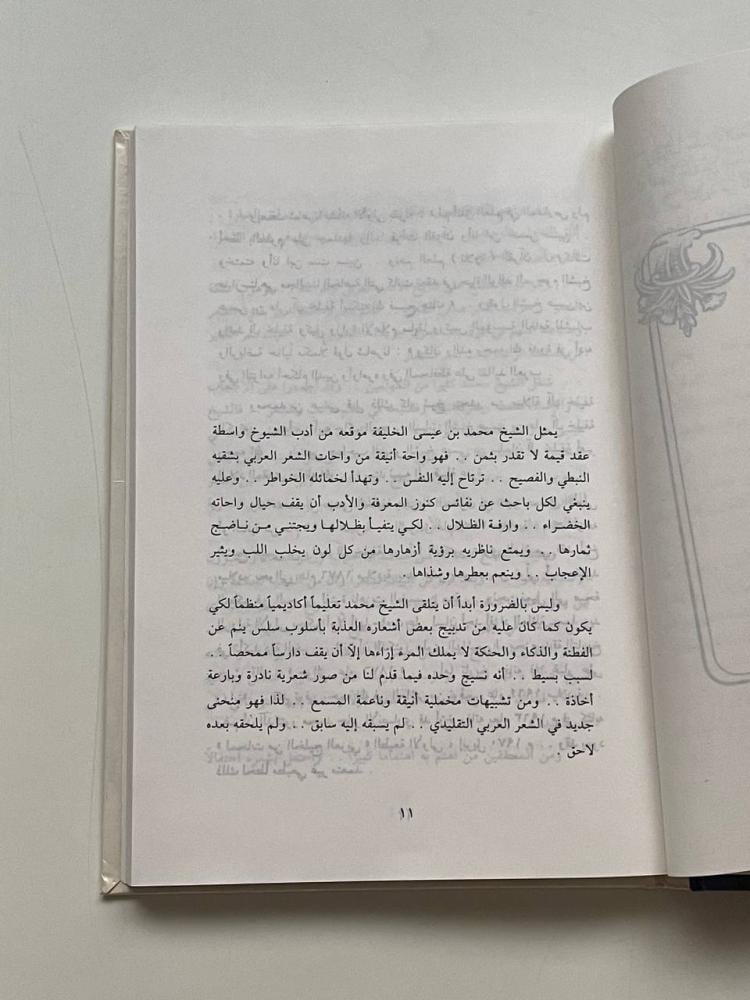 يمثل الشيخ محمد بن عيسى الخليفة موقعه من أدب الشيوخ واسطة
عقد قيمة لا تقدر بثمن . . فهو واحة أنيقة من واحات الشعر العربي بشقيه
النبطي والفصيح . . ترتاح إليه النفس . . وتهدأ لخمائله الخواطر . . وعليه
ينبغي لكل باحث عن نفائس كنوز المعرفة والأدب أن يقف حيال واحاته
الخضراء . . وارفة الظلال . . لكي يتفيأ بظلالها ويجتني من ناضج
ثمارها . . ويمتع ناظريه برؤية أزهارها من كل لون يخلب اللب ويثير
الإعجاب . . وينعم بعطرها وشذاها .
وليس بالضرورة أبداً أن يتلقى الشيخ محمد تعليماً أكاديمياً منظماً لكي
يكون كما كان عليه من تدبيج بعض أشعاره العذبة بأسلوب سلس ينم عن
الفطنة والذكاء والحنكة لا يملك المرء إزاءها إلاّ أن يقف دارساً ممحصاً . .
لسبب بسيط . . أنه نسيج وحده فيما قدم لنا من صور شعرية نادرة وبارعة
أخاذة . . ومن تشبيهات مخملية أنيقة وناعمة المسمع . . لذا فهو منحنى
جديد في الشعر العربي التقليدي . . لم يسبقه إليه سابق . . ولم يلحقه بعده
لاحق .
١١